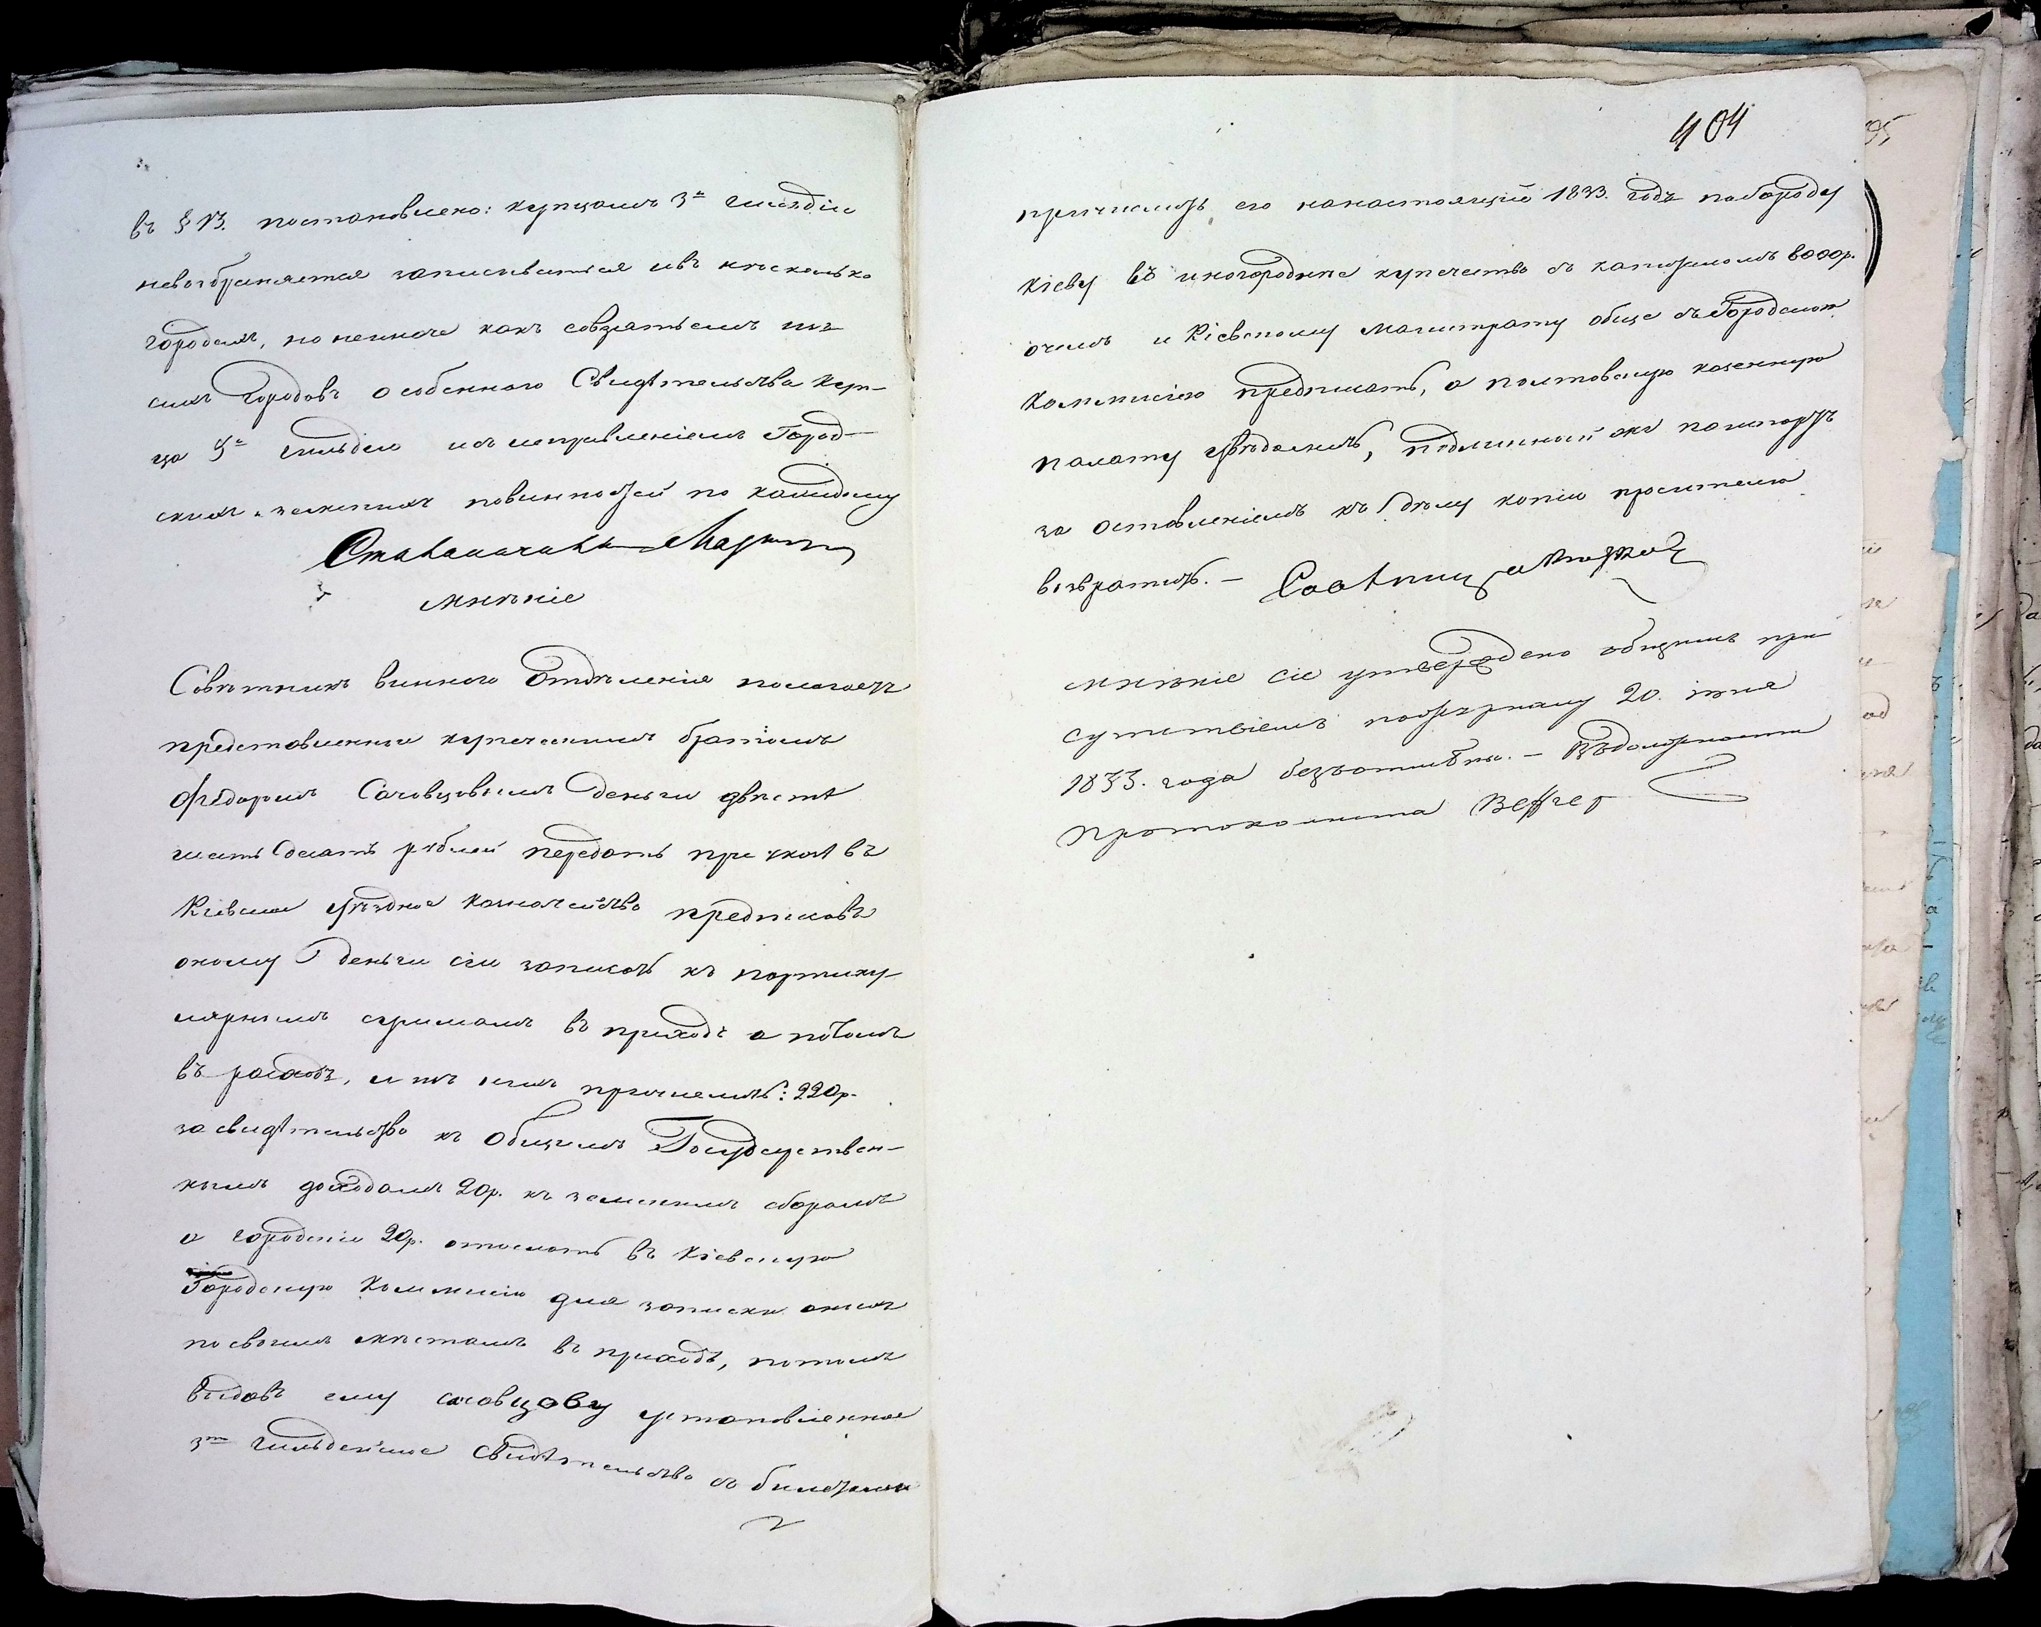 въ § 13. постановлено: купцамъ 3й гильдіи
невозбраняется записываться и въ нѣсколько
городахъ, но неиначе какъ совзятьемъ изъ
сихъ городовъ особеннаго Свидѣтельства куп-
ца 3й гильдіи и съ исправленіемъ Город-
скихъ и земскихъ повинностей по каждому
Столоначальникъ
мнѣніе
Совѣтникъ виннаго Отдѣленія полагаетъ
представленныя купеческимъ братомъ
Федоромъ Сачовцовымъ деньги двѣсти
шесть десятъ рублей передать при указѣ въ
Кіевское уѣздное казначейство предписавъ
оному деньги сіи записать къ партику-
лярнымъ суммамъ въ приходъ а потомъ
въ расходъ, и изъ нихъ причислить: 220р.
за свидѣтельство къ Общимъ Государствен-
нымъ доходамъ 20р. къ земскимъ сборамъ
а городскія 20р. отослать въ Кіевскую
Городскую Коммисію для записки оныхъ
по своимъ мѣстамъ въ приходъ, потомъ
выдавъ ему Сачовцову установленное
3й гильдейское свидѣтельство съ билетомъ
404
причислить его на настоящій 1833. годъ по городу
Кіеву въ иногородные купечество съ капиталомъ 8000р.
о чемъ и Кіевскому Магистрату обще съ Городскою
Коммисіею предписать, а полтавскую казенную
палату увѣдомить, подлинный же
за оставленіемъ къ дѣлу копіи просителю
возвратить. — Совѣтникъ
мнѣніе сіе утверждено общимъ при-
сутствіемъ по журналу 20. іюня
1833. года безъ отмѣны. — Въ должности
Протоколиста